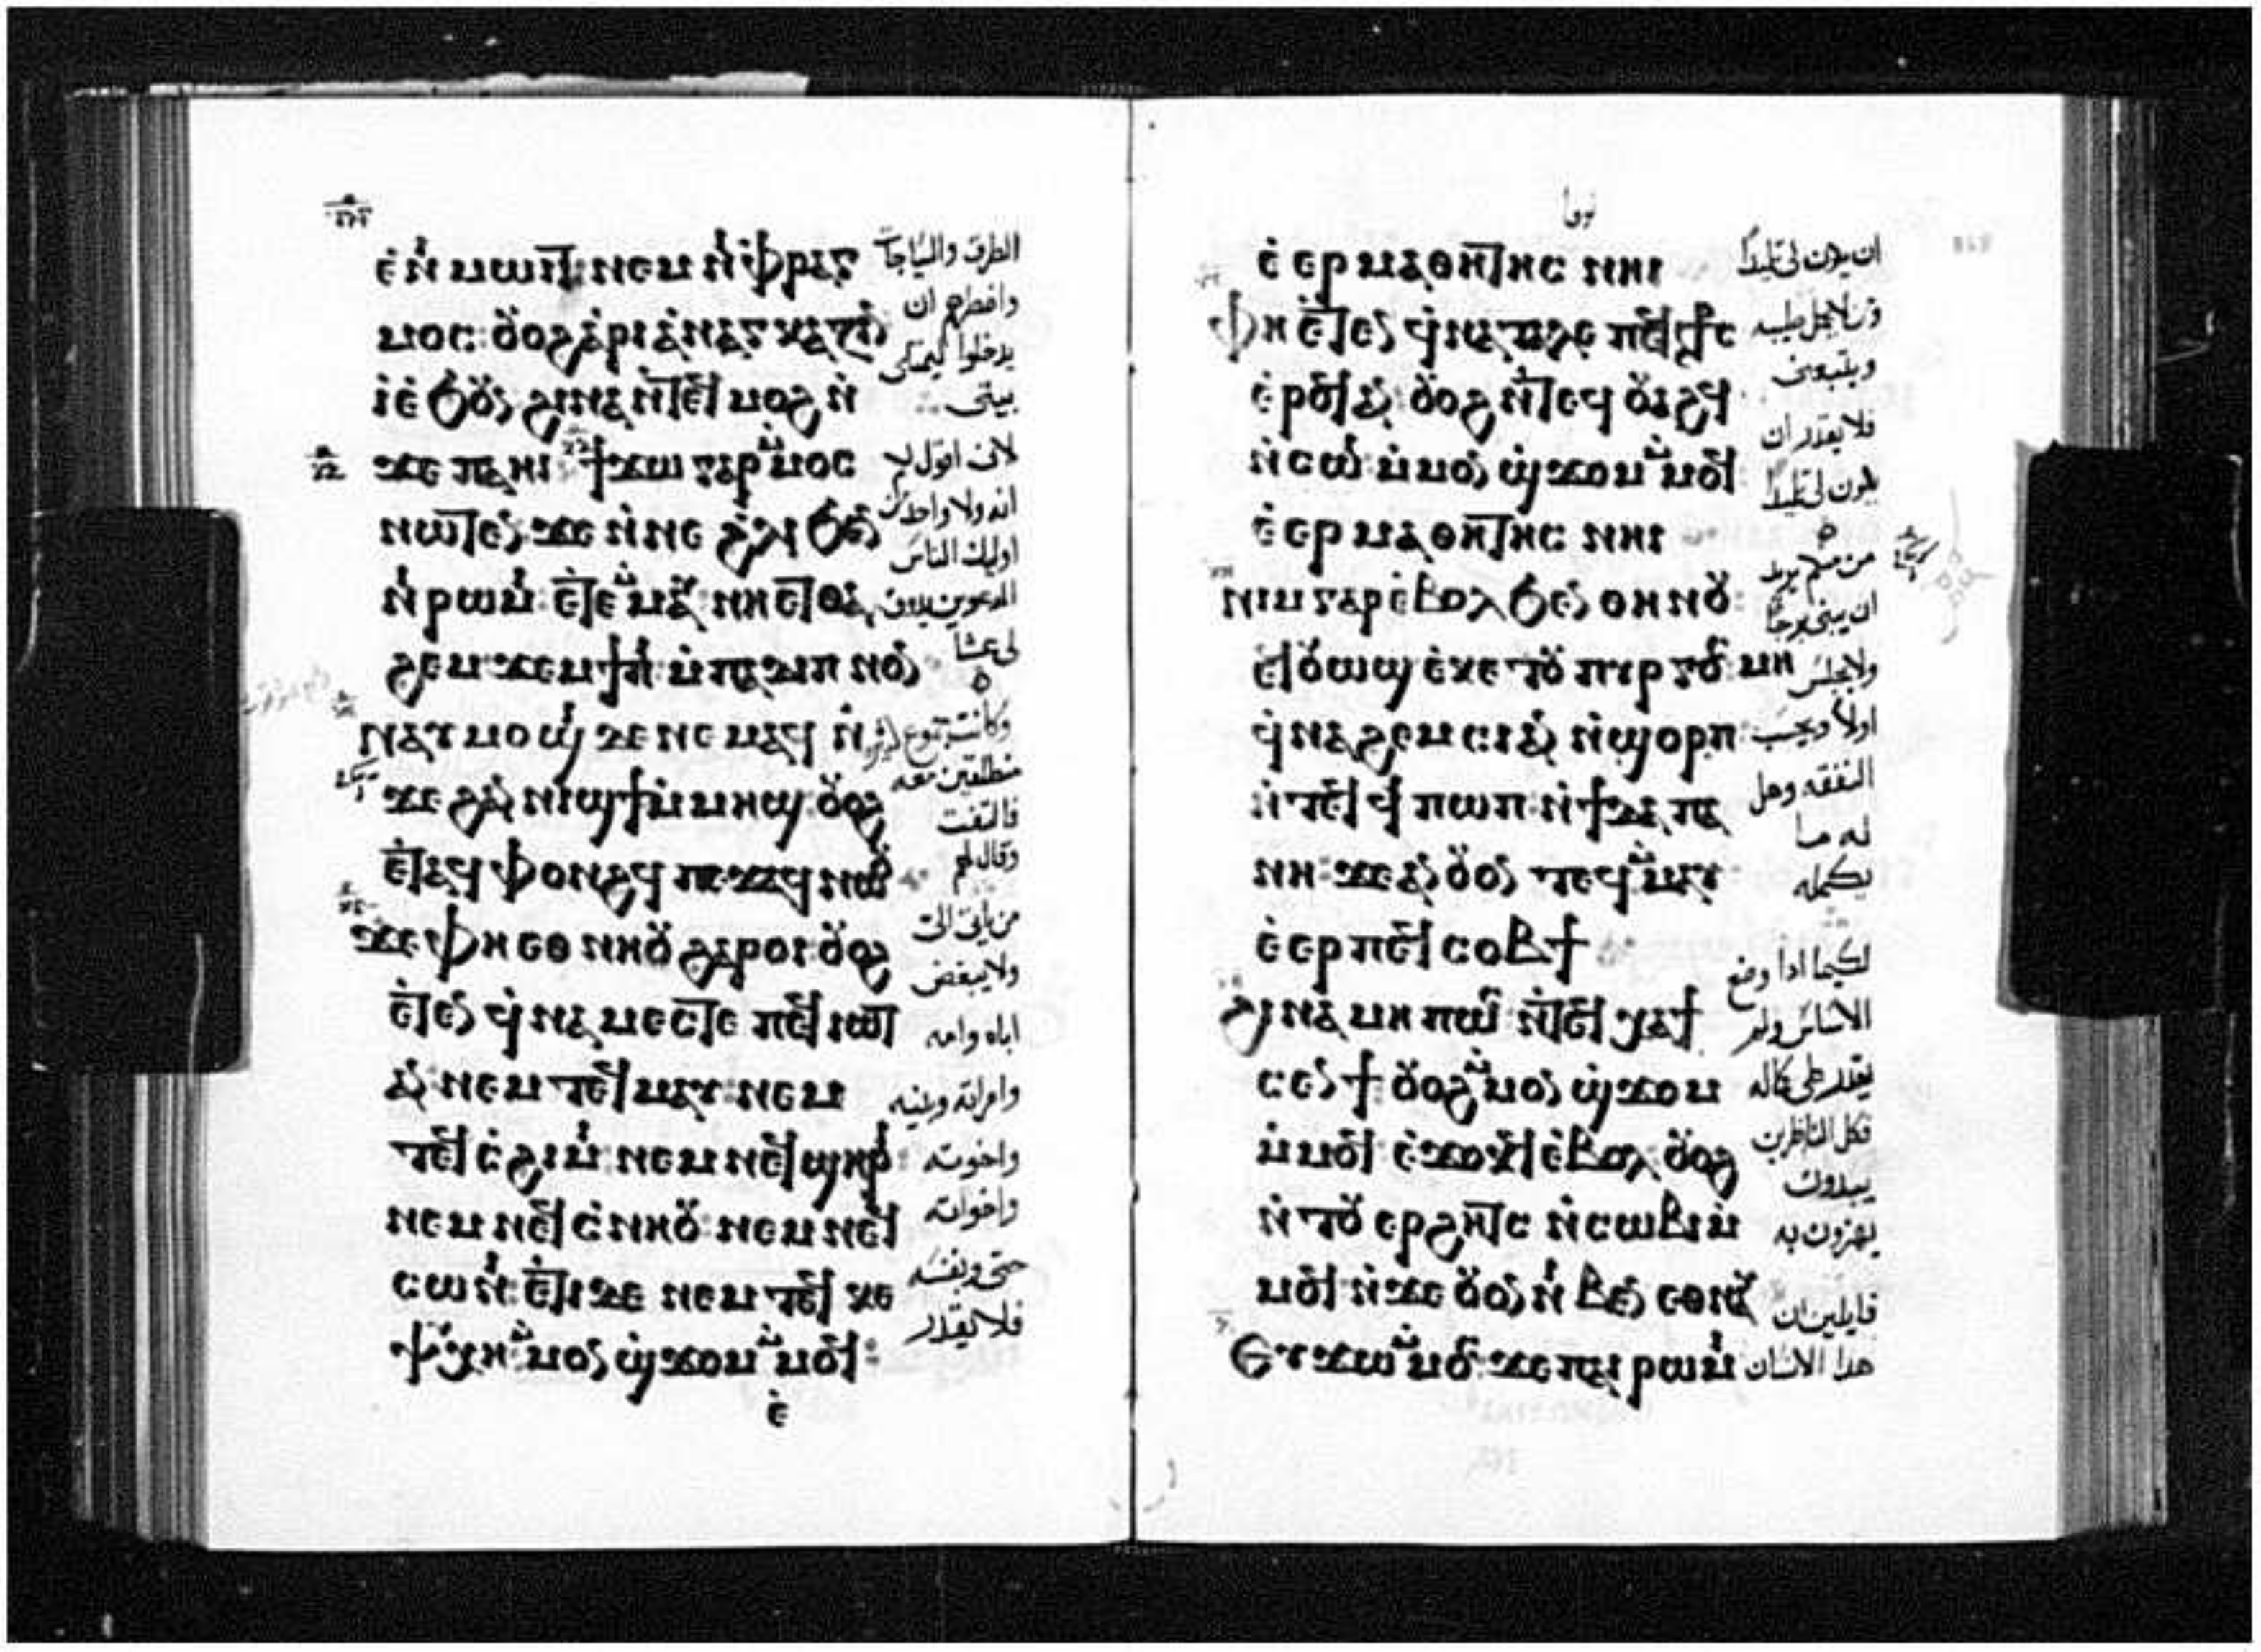 ⲉⲛⲓⲙⲱⲓⲧ ⲛⲉⲙ ⲛⲓⲫⲣⲁⲅ
ⲙⲟⲥ: ⲟⲩⲟϩ ⲁⲣⲓⲁⲛⲁⲅⲕⲁⲍⲓⲛ
ⲓⲉϧⲟⲩⲛ ϩⲓⲛⲁ ⲛⲧⲉϥⲙⲟϩ ⲛ
ϫⲉ ⲡⲁⲏⲓ ϯϫⲱ ⲅⲁⲣ ⲙⲙⲟⲥ
ⲛⲱⲧⲉⲛ ϫⲉ ⲛⲛⲉ ϩⲗⲓ ϧⲉⲛ
ⲛⲓⲣⲱⲙⲓ ⲉⲧⲉⲙⲙⲁⲩ ⲛⲏⲉⲧⲑⲁ
ϩⲉⲙ ϫⲉⲙϯⲡⲓ ⲙⲡⲁⲇⲓⲡⲛⲟⲛ
ⲛⲁⲩⲙⲟϣⲓ ⲇⲉ ⲛⲉⲙⲁϥ ⲛ
ϫⲉ ϩⲁⲛⲛⲓϣϯ ⲙⲙⲏϣ: ⲟⲩⲟϩ
ⲉⲧⲁϥⲫⲟⲛϩϥ ⲡⲉϫⲁϥ ⲛⲱⲟⲩ
ϫⲉ ⲫⲏ ⲉⲑⲛⲏⲟⲩ ϩⲁⲣⲟⲓ ⲟⲩⲟϩ
ⲉⲧⲉⲛϥⲛⲁⲙⲉⲥⲧⲉ ⲡⲉϥⲓⲱⲧ
ⲁⲛ: ⲛⲉⲙ ⲧⲉϥⲙⲁⲩ: ⲛⲉⲙ
ⲧⲉϥⲥϩⲓⲙⲓ: ⲛⲉⲙ ⲛⲉϥϣⲏⲣⲓ:
ⲛⲉⲙ ⲛⲉϥⲥⲛⲏⲟⲩ: ⲛⲉⲙ ⲛⲉϥ
ⲥⲱⲛⲓ: ⲉⲧⲓ ⲇⲉ ⲛⲉⲙ ⲧⲉϥⲕⲉ
ⲯⲩⲭⲏ: ⲙⲙⲟⲛϣϫⲟⲙ ⲙⲙⲟϥ:
ⲉ
الطرق والسياجات
واضطرهم ان
يدخلوا ليمتلى
بيتى
لانى اقول لكم
انه ولا واحد من
اوليك الناس
المدعوين يذوق
لى عشا
منطلقين معه
فالتفت
وقال لهم
من ياتى الى
ولا يبغض
اباه وامه
وامراته وبنيه
واخوته
واخواته
حتى ونفسه
فلا يقدر
ⲉⲉⲣⲙⲁⲑⲏⲧⲏⲥ ⲛⲏⲓ
ⲫⲏ ⲉⲧⲉⲛϥⲛⲁϥⲁⲓ ⲡⲉϥⲥⲧⲁⲩⲣⲟⲥ
ⲉⲣⲟϥ ⲁⲛ: ⲟⲩⲟϩ ⲛⲧⲉϥⲟⲩⲁϩϥ
ⲛⲥⲱⲓ ⲙⲙⲟⲛϣϫⲟⲙ ⲙⲙⲟϥ
ⲉⲉⲣⲙⲁⲑⲏⲧⲏⲥ ⲛⲏⲓ
ⲛⲓⲙ ⲅⲁⲣ ⲉⲃⲟⲗ ϧⲉⲛ ⲑⲏⲛⲟⲩ
ⲉϥⲟⲩⲱϣ ⲉⲕⲉⲧ ⲟⲩⲡⲩⲣⲅⲟⲥ ⲙⲏ
ϥⲛⲁϩⲉⲙⲥⲓ ⲁⲛ ⲛϣⲟⲣⲡ:
ⲛⲧⲉϥϥⲓ ⲡⲱⲡ ⲛϯⲇⲁⲡⲁ
ⲛⲏ: ϫⲉ ⲁⲛ ⲟⲩⲟⲛ ⲧⲉϥ ⲙⲙⲁⲩ
ⲉⲉⲣⲡⲉϥⲥⲟⲃϯ
ϩⲓⲛⲁ ⲙⲏⲡⲱⲥ ⲛⲧⲉϥϩⲓⲥⲉⲛϯ
ⲟⲩⲟϩ ⲙⲙⲟⲛϣϫⲟⲙ
ⲙⲙⲟϥ ⲉϫⲟⲕϥ ⲉⲃⲟⲗ: ⲟⲩⲟϩ
ⲛⲧⲟⲩⲉⲣϩⲏⲧⲥ ⲛⲥⲱⲃⲓ ⲙ
ⲙⲟϥ ⲛϫⲉ ⲟⲩⲟⲛ ⲛⲓⲃⲉⲛ ⲉⲑⲛⲁⲩ
ⲉⲩϫⲱ ⲙⲙⲟⲥ ϫⲉ ⲡⲁⲓⲣⲱⲙⲓ
ان يكون لى تلميذا
ويتبعنى
فلا يقدر ان
يكون لى تلميذا
من منكم يريد
ان يبنى برجا
ولا يجلس
اولا ويحسب
النفقه وهل
له ما
يكمله
لكيما اذا وضع
الاساس ولم
يقدر على كماله
فكل الناظرين
يبدون
يهزون به
قايلين ان
هذا الانسان